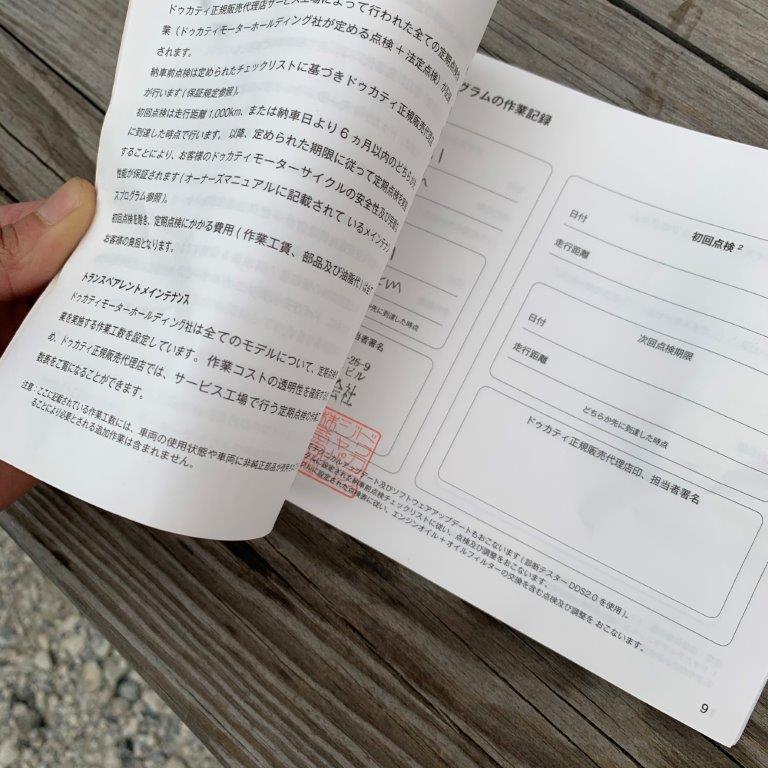 ドゥカティ正規販売代理店サービス工場によって行われた全ての定期点検
業（ドゥカティモーターホールディング社が定める点検＋法定点検）が
されます。
納車前点検は定められたチェックリストに基づきドゥカティ正規販売代理店
が行います（保証規定参照）。
初回点検は走行距離 1,000km、または納車日より6ヵ月以内のどちらか
に到達した時点で行います。以降、定められた期限に従って定期点検を
することにより、お客様のドゥカティモーターサイクルの安全性及び
性能が保証されます（オーナーズマニュアルに記載されているメインテナン
スプログラム参照）。
初回点検を除き、定期点検にかかる費用（作業工賃、部品及び油脂代）は
お客様の負担となります。
トランスペアレントメインテナンス
ドゥカティモーターホールディング社は全てのモデルについて、定期点検
業を実施する作業工数を設定しています。作業コストの透明性を確保する
め、ドゥカティ正規販売代理店では、サービス工場で行う定期点検の作業
数表をご覧になることができます。
注意：ここに記載されている作業工数には、車両の使用状態や車両に非純正部品が
ることにより必要とされる追加作業は含まれません。
グラムの作業記録
先に到達した時点
当者署名
26-9
ビル
会社
会社
初回点検 2
日付
走行距離
次回点検期限
日付
走行距離
どちらか先に到達した時点
ドゥカティ正規販売代理店印、担当者署名
テクニカルアップデート及びソフトウェアアップデートもおこないます（診断テスター DDS2.0 を使用）。
グラムに設定された納車前点検チェックリストに従い、点検及び調整をおこないます。
ラムに設定された点検表に従い、エンジンオイル＋オイルフィルターの交換を含む点検及び調整を おこないます。
9